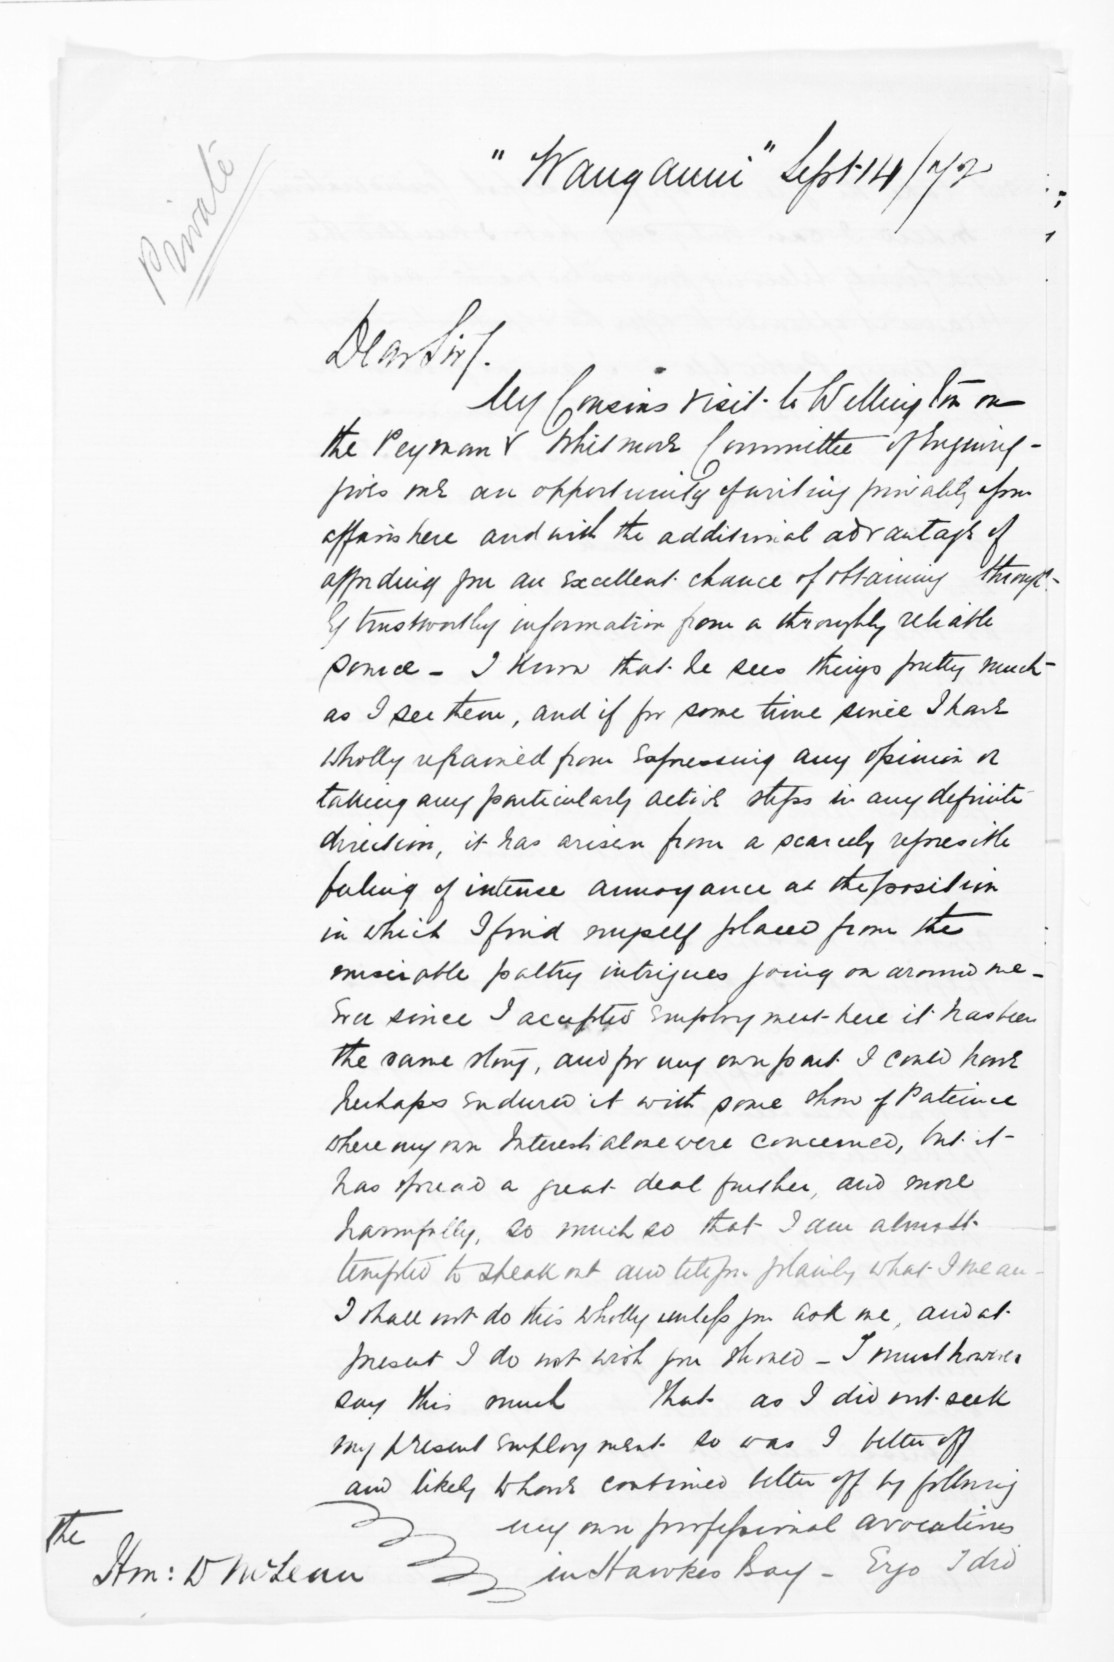 Private
"Wanganui" Sept. 14/72
Dear Sir/.
My Cousins visit to Wellington on
the Peyman & Whitmore Committee of Enquiry -
gives me an opportunity of writing privately upon
affairs here and with the additional advantage of
affording you an excellent chance of obtaining through-
ly trustworthy information from a throughly reliable
source - I know that he sees things pretty much
as I see them, and if for some time since I have
wholly refrained from expressing any opinion or
taking any particularly active steps in any definite
direction, it has arisen from a scarcely represible
feeling of intense annoyance at the position
in which I find myself placed from the
miserable paltry intrigues going on around me -
Ever since I accepted employment here it has been
the same story, and for my own part I could have
perhaps endured it with some show of Patience
where my own Interests alone were concerned, but it
has spread a great deal further, and more
harmfully, so much so that I am almost
tempted to speak out and tell you plainly what I mean -
I shall not do this wholly unless you ask me, and at
present I do not wish you should - I must however
say this much that as I did not seek
my present employment so was I better off
and likely to have continued better off by following
my own professional avocations
in Hawkes Bay - Ergo I did
the
Hon: D McLean